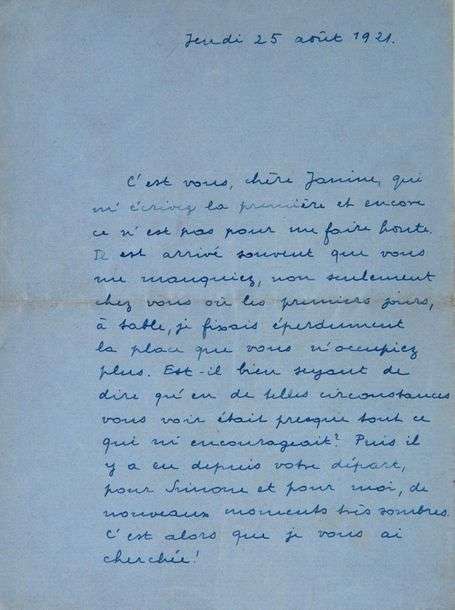 Jeudi 25 août 1921.
C'est vous, chère Janine, qui
m'écrivez la première et encore
ce n'est pas pour me faire honte.
Il est arrivé souvent que vous
me manquiez, non seulement
chez vous où les premiers jours,
à table, je fixais éperdument
la place que vous n'occupiez
plus. Est-il bien seyant de
dire qu'en de telles circonstances
vous voir était presque tout ce
qui m'encourageait? Puis il
y a eu depuis votre départ,
pour Simone et pour moi, de
nouveaux moments très sombres.
C'est alors que je vous ai
cherchée!